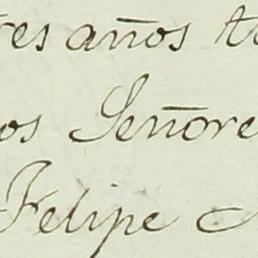 tres años
os Señore
Felipe